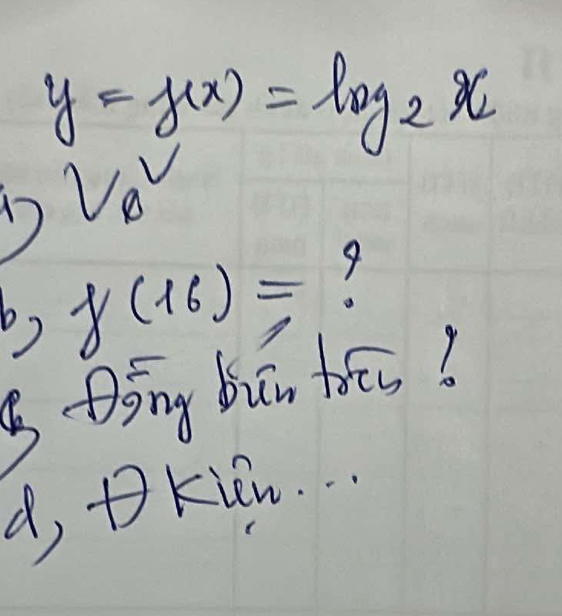 y = f(x) = log₂ x
a, Vẽ
b, f(16) = ?
c, Đồng biến trên ?
d, Đ kiện...